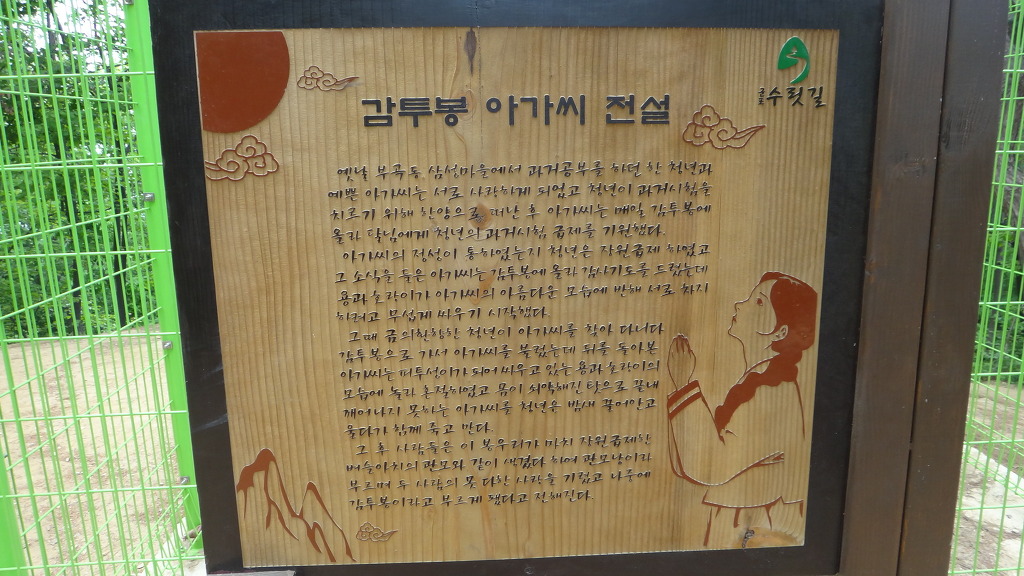 감투봉 아가씨 전설
군포
수릿길
옛날 부곡동 삼성마을에서 과거공부를 하던 한 청년과
예쁜 아가씨는 서로 사랑하게 되었고 청년이 과거시험을
치르기 위해 한양으로 떠난 후 아가씨는 매일 감투봉에
올라 달님에게 청년의 과거시험 급제를 기원했다.
아가씨의 정성이 통하였는지 청년은 장원급제 하였고
그 소식을 들은 아가씨는 감투봉에 올라 감사기도를 드렸는데
용과 호랑이가 아가씨의 아름다운 모습에 반해 서로 차지
하려고 무섭게 싸우기 시작했다.
그때 금의환향한 청년이 아가씨를 찾아 다니다
감투봉으로 가서 아가씨를 불렀는데 뒤를 돌아본
아가씨는 피투성이가 되어 싸우고 있는 용과 호랑이의
모습에 놀라 혼절하였고 몸이 쇠약해진 탓으로 끝내
깨어나지 못하는 아가씨를 청년은 밤새 끌어안고
울다가 함께 죽고 만다.
그 후 사람들은 이 봉우리가 마치 장원급제한
벼슬아치의 관모와 같이 생겼다 하여 관모낭이라
부르며 두 사람의 못 다한 사랑을 기렸고 나중에
감투봉이라고 부르게 됐다고 전해진다.